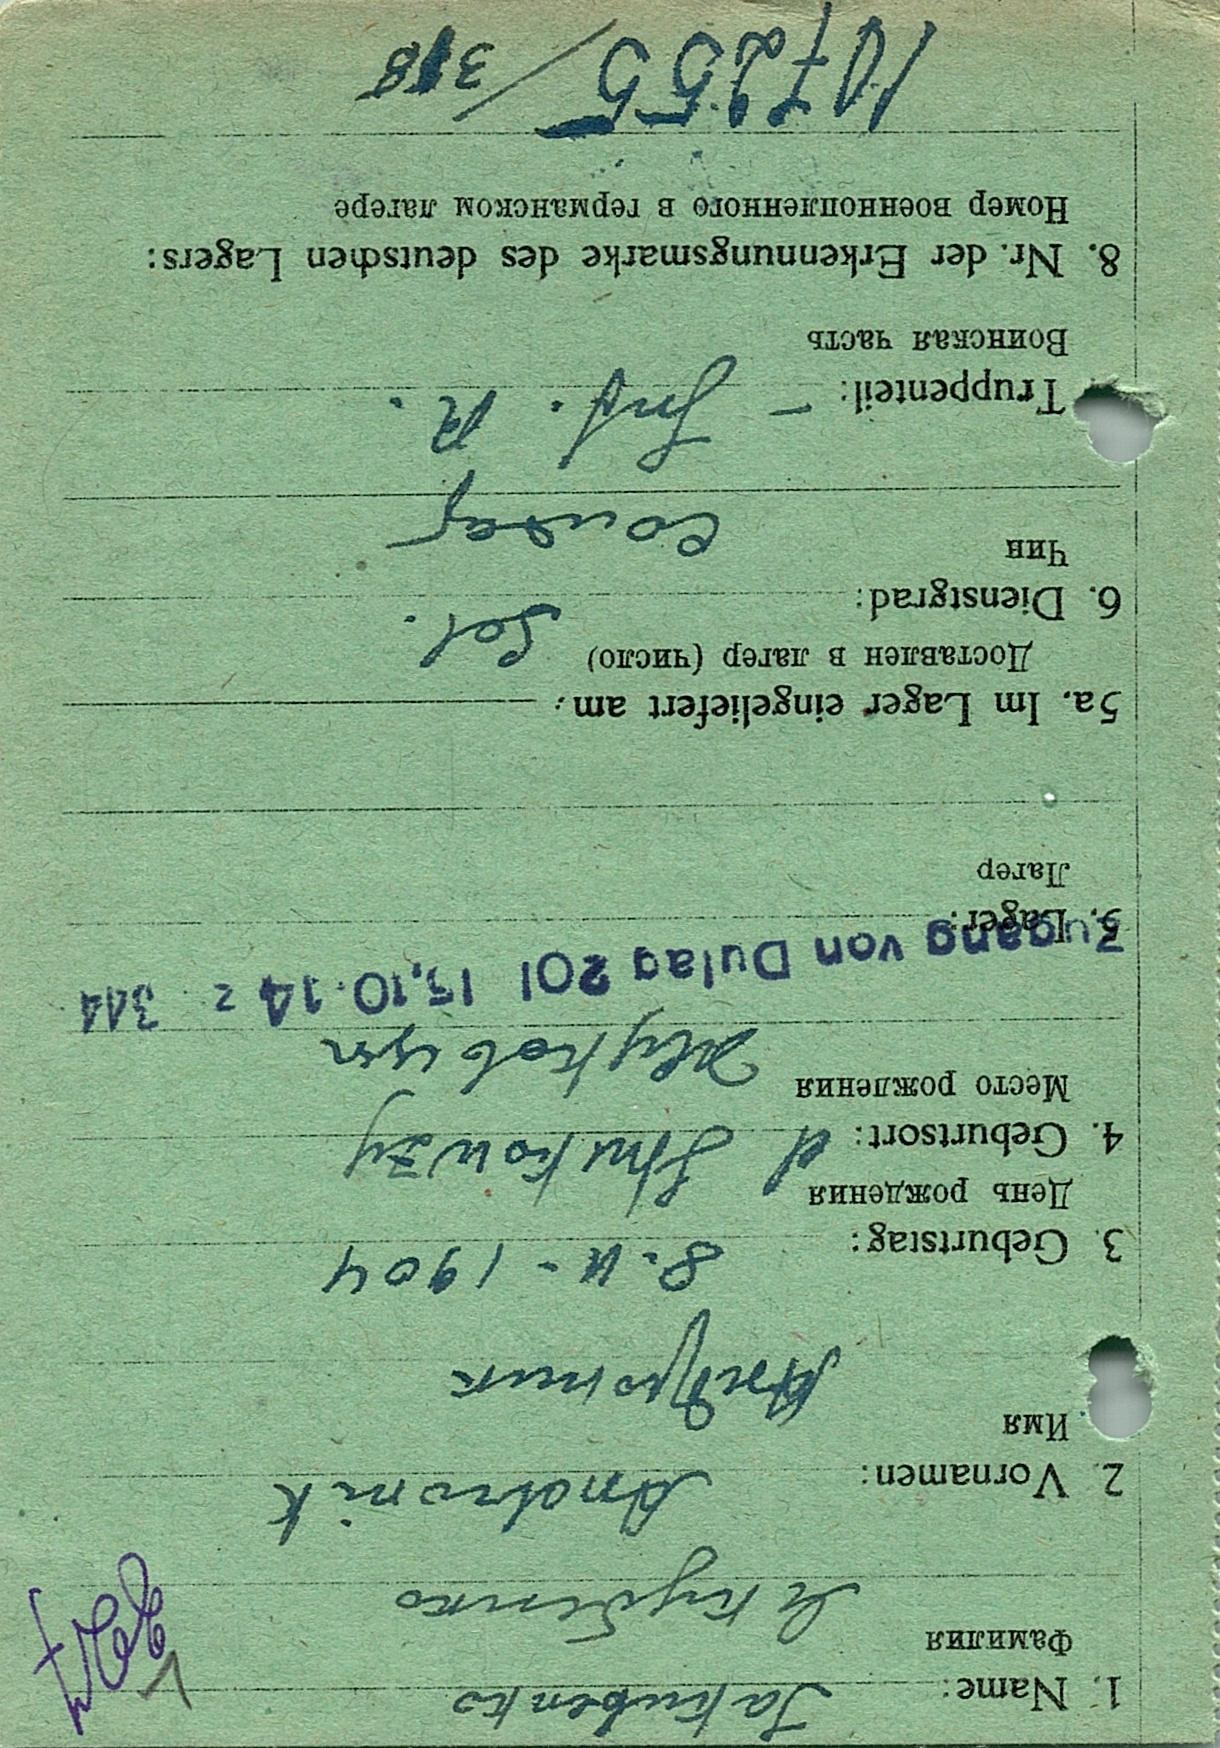 1. Name: Jakubenko
Фамилия
Якубенко
2. Vornamen: Andronik
Имя
Андроник
3. Geburtstag: 8. II - 1904
День рождения
4. Geburtsort: d Shukowzy
Место рождения
Жуковцы
Zugang von Dulag 201 13.10.14 = 344
5. Lager:
Лагер
5a. Im Lager eingeliefert am:
Доставлен в лагер (число)
6. Dienstgrad: Sol.
Чин
солдат
Truppenteil: – Inf. R.
Воинская часть
8. Nr. der Erkennungsmarke des deutschen Lagers:
Номер военнопленного в германском лагере
107255 / 318